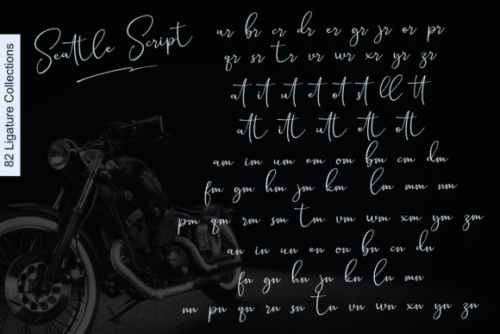 82 Ligature Collections
Seattle Script
ar br cr dr er gr jr or pr
qr sr tr vr wr xr yr zr
at it ut et ot st ll tt
att itt utt ett ott
am im um em om bm cm dm
fm gm hm jm km lm mm nm
pm qm rm sm tm vm wm xm ym zm
an in un en on bn cn dn
fn gn hn jn kn ln mn
nn pn qn rn sn tn vn wn xn yn zn